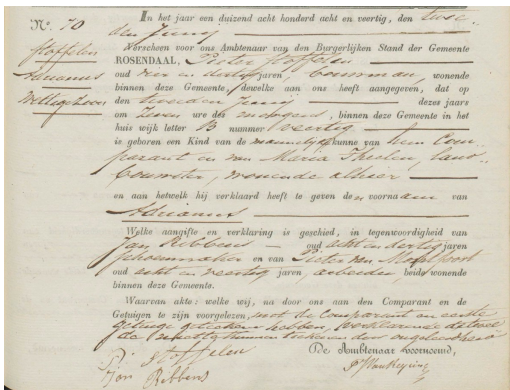 N.º 70
Stoffelen
Adrianus
In het jaar een duizend acht honderd acht en veertig, den twee
den Junij
Verscheen voor ons Ambtenaar van den Burgerlijken Stand der Gemeente
ROSENDAAL, Pieter Stoffelen
oud vier en dertig jaren, bouwman, wonende
binnen deze Gemeente, dewelke aan ons heeft aangegeven, dat op
den tweeden Junij dezes jaars
om zeven ure des morgens, binnen deze Gemeente in het
huis wijk letter B nummer veertig
is geboren een Kind van de mannelijke kunne van hem Com-
parant en van Maria Thielen, land-
bouwster, wonende alhier
en aan hetwelk hij verklaard heeft te geven de voornaam van
Adrianus
Welke aangifte en verklaring is geschied, in tegenwoordigheid van
Jan Ribbens oud acht en dertig jaren
schoenmaker en van Pieter van
oud acht en veertig jaren, arbeider, beide wonende
binnen deze Gemeente.
Waarvan akte: welke wij, na door ons aan den Comparant en de
Getuigen te zijn voorgelezen, met de Comparant en eerste
getuige geteekend hebben, verklarende de tweede
De Ambtenaar voornoemd,
P. Stoffelen
Jan Ribbens